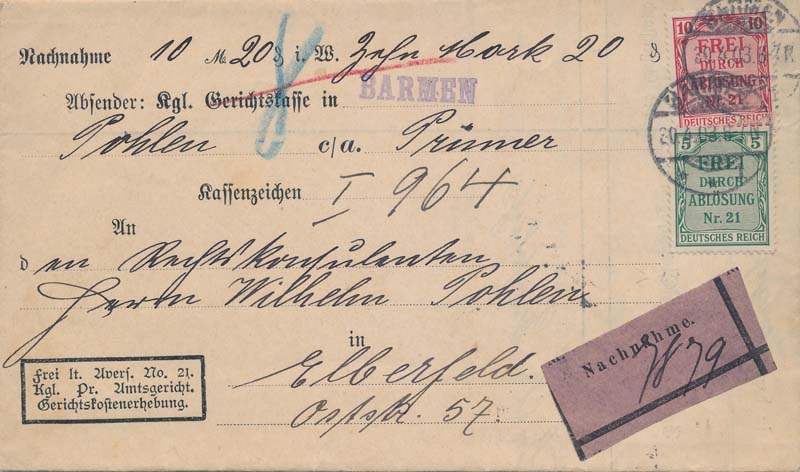 Nachnahme 10 M 20 ₰ i. W. Zehn Mark 20 ₰
Absender: Kgl. Gerichtskasse in BARMEN
Pohlen c/a. Prümer
Kassenzeichen I 964
An
den Rechtskonsulenten
Herrn Wilhelm Pohlen
in
Elberfeld.
Oststr. 57.
Frei lt. Avers. No. 21.
Kgl. Pr. Amtsgericht.
Gerichtskostenerhebung.
10 10
FREI
DURCH
ABLÖSUNG
Nr. 21
DEUTSCHES REICH
5 5
FREI
DURCH
ABLÖSUNG
Nr. 21
DEUTSCHES REICH
BARMEN
Nachnahme.